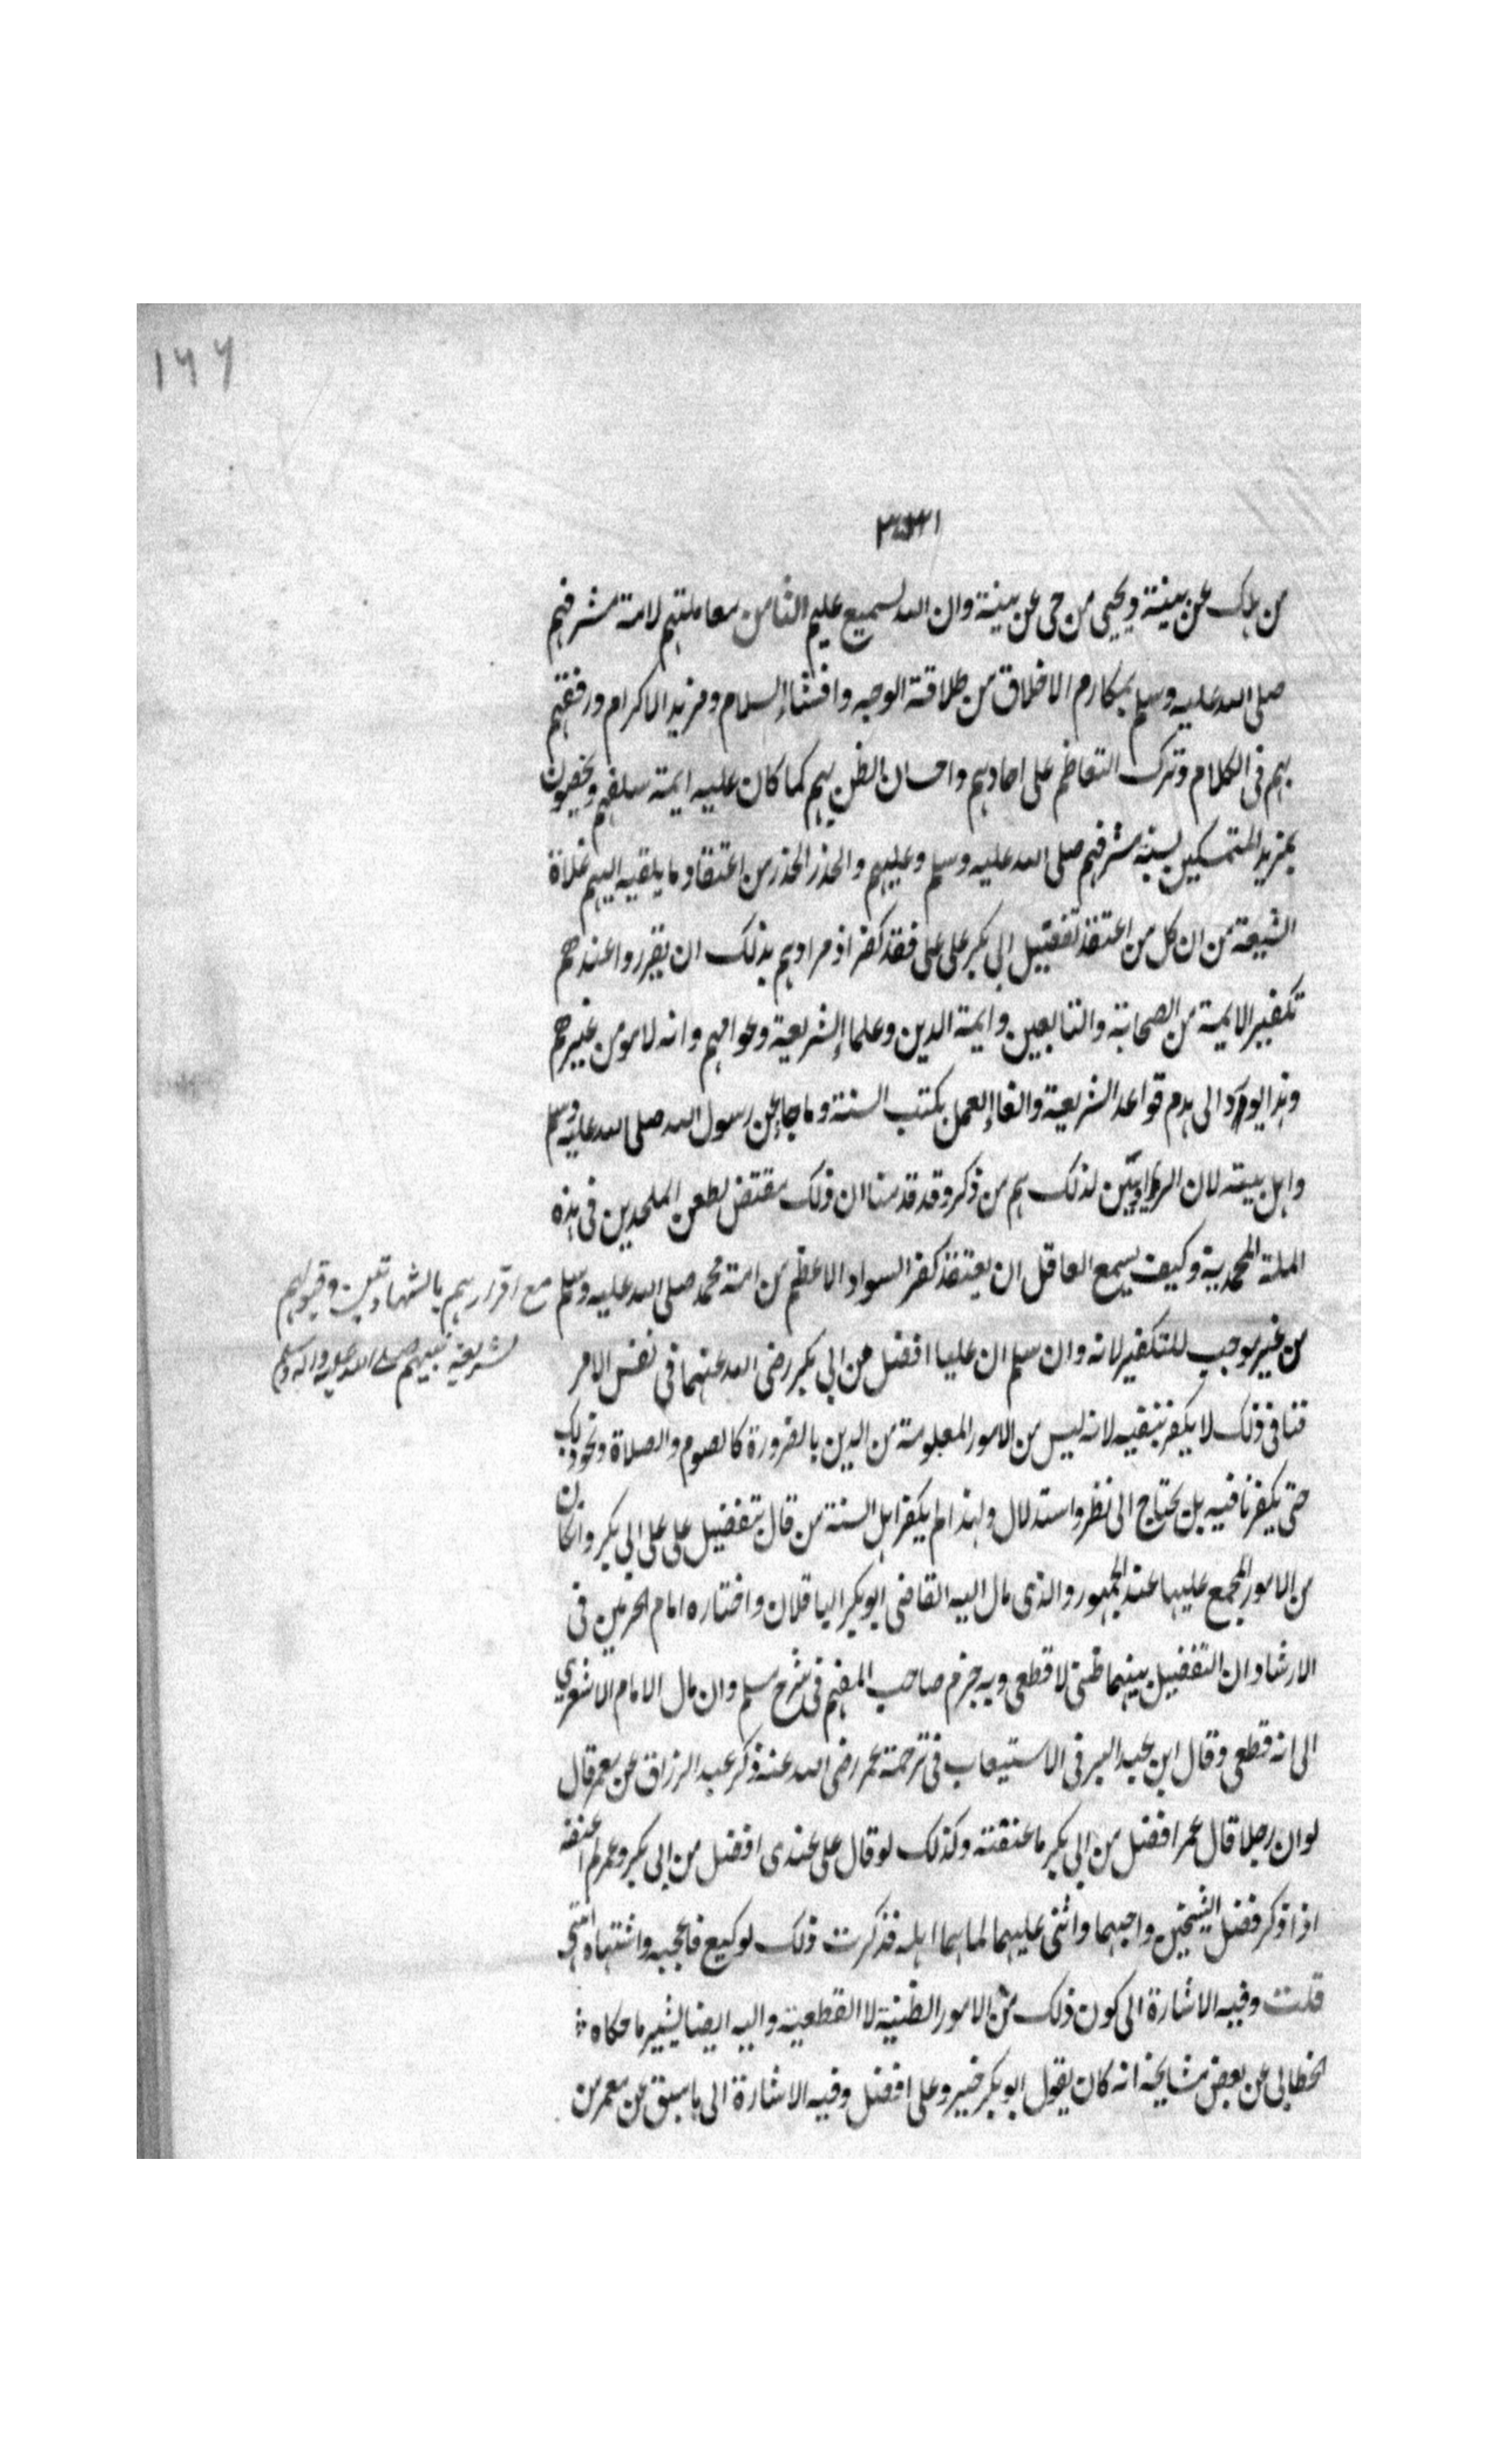 ١٦٦
من هلك عن بينة ويحيى من حى عن بينة وان الله لسميع عليم الثامن معاملتهم لامة مشرفهم
صلى الله عليه وسلم بمكارم الاخلاق من طلاقة الوجه وافشاء السلام ومزيد الاكرام ورفقهم
بهم فى الكلام وترك التعاظم على احادهم واحسان الظن بهم كما كان عليه ايمة سلفهم ويخصون
بمزيد المتمسكين بسنة مشرفهم صلى الله عليه وسلم وعليهم والحذر الحذر من اعتقاد ما يلقيه اليهم غلاة
الشيعة من ان كل من اعتقد تفضيل ابى بكر على على فقد كفر اذ مرادهم بذلك ان يقرروا عندهم
تكفير الايمة من الصحابة والتابعين وايمة الدين وعلماء الشريعة وعوامهم وانه لا مومن غيرهم
وهذا يودى الى هدم قواعد الشريعة والغاء العمل بكتب السنة وما جاء عن رسول الله صلى الله عليه وسلم
واهل بيته لان الراويين لذلك هم من ذكر وقد قدمنا ان ذلك مقتض لطعن الملحدين فى هذه
الملة المحمدية وكيف يسمع العاقل ان يعتقد كفر السواد الاعظم من امة محمد صلى الله عليه وسلم مع اقرارهم بالشهادتين وقبولهم
لشريعة نبيهم صلى الله عليه واله وسلم
من غير موجب للتكفير لانه وان سلم ان عليا افضل من ابى بكر رضى الله عنهما فى نفس الامر
فنافى ذلك لا يكفر بنفيه لانه ليس من الامور المعلومة من الدين بالضرورة كالصوم والصلاة ونحو ذلك
حتى يكفر نافيه بل يحتاج الى نظر واستدلال ولهذا لم يكفر اهل السنة من قال بتفضيل على على ابى بكر وان كان
من الامور المجمع عليها عند الجمهور والذى مال اليه القاضى ابو بكر الباقلان واختاره امام الحرمين فى
الارشاد ان التفضيل بينهما ظنى لا قطعى وبه جزم صاحب المفهم فى شرح مسلم وان مال الامام الاشعري
الى انه قطعى وقال ابن عبد البر فى الاستيعاب فى ترجمة عمر رضى الله عنه ذكر عبد الرزاق عن معمر قال
لو ان رجلا قال عمر افضل من ابى بكر ما عنفته وكذلك لو قال على عندى افضل من ابى بكر وعمر لم اعنفه
اذا ذكر فضل الشيخين واحبهما واثنى عليهما لما هما اهله فذكرت ذلك لوكيع فاعجبه واشتهاه انتهى
قلت وفيه الاشارة الى كون ذلك من الامور الظنية لا القطعية واليه ايضا يشير ما حكاه
الخطابى عن بعض مشايخه انه كان يقول ابو بكر خير وعلى افضل وفيه الاشارة الى ما سبق عن معمر من